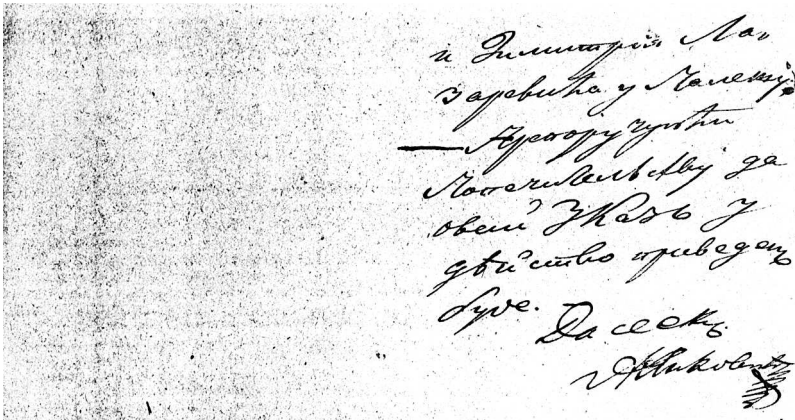 и Димитрія Ла-
заревића у Палежу.
— Препоручити
Попечительству да
овай Указъ у
дѣйство приведенъ
буде.